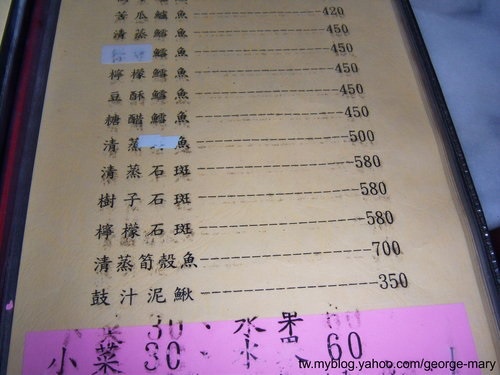 苦瓜鱸魚 420
清蒸鱈魚 450
鱈魚 450
檸檬鱈魚 450
豆酥鱈魚 450
糖醋鱈魚 450
清蒸 魚 500
清蒸石斑 580
樹子石斑 580
檸檬石斑 580
清蒸筍殼魚 700
鼓汁泥鰍 350
小菜30、水果60
tw.myblog.yahoo.com/george-mary